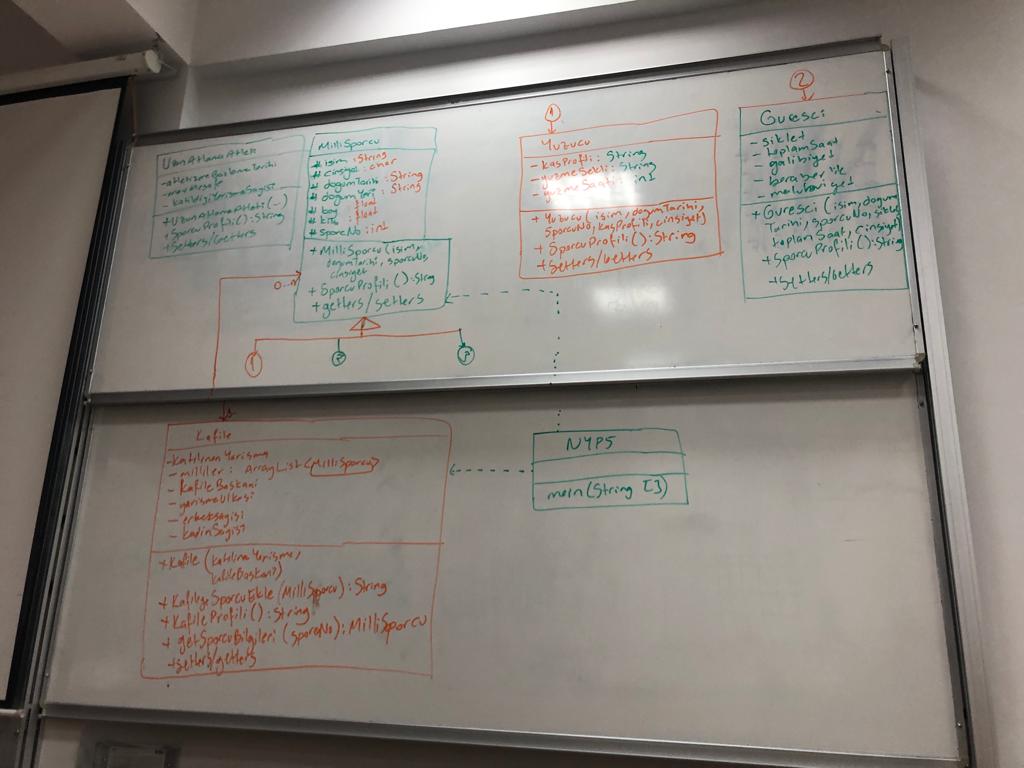 UzunAtlamaAtleti
+ UzunAtlamaAtleti(-)
+ SporcuProfili():String
+ Setters/Getters
MilliSporcu
# isim : String
# cinsiyet : char
# dogumTarihi : String
# dogumYeri : String
# boy : float
# kilo : float
# sporcNo : int
+ MilliSporcu (isim,
dogumTarihi, sporcuNo,
cinsiyet
+ SporcuProfili () : String
+ getters / setters
0..n
1
2
3
1
Yuzucu
- kasProfili : String
- yuzmeSekli : String
- yuzmeSaati : int
+ Yuzucu (isim, dogumTarihi,
SporcuNo, kasProfili, cinsiyet)
+ SporcuProfili () : String
+ Setters/Getters
2
Guresci
- siklet
- toplamSaat
- galibiyet
- beraberlik
- maglubiyet
+ Guresci (isim, dogum
Tarihi, sporcuNo, siklet
toplamSaat, cinsiyet)
+ Sporcu
Profili () : String
+ Setters/Getters
Kafile
- katilinanYarisma
- milliler : ArrayList<MilliSporcu>
- kafileBaskani
- yarismaUlkesi
- erkekSayisi
- kadinSayisi
+ Kafile (katilinaYarisma,
kafileBaskani)
+ KafileyeSporcuEkle(MilliSporcu) : String
+ KafileProfili () : String
+ getSporcuBilgileri (sporcNo) : MilliSporcu
+ setters/getters
NYP5
main(String [])